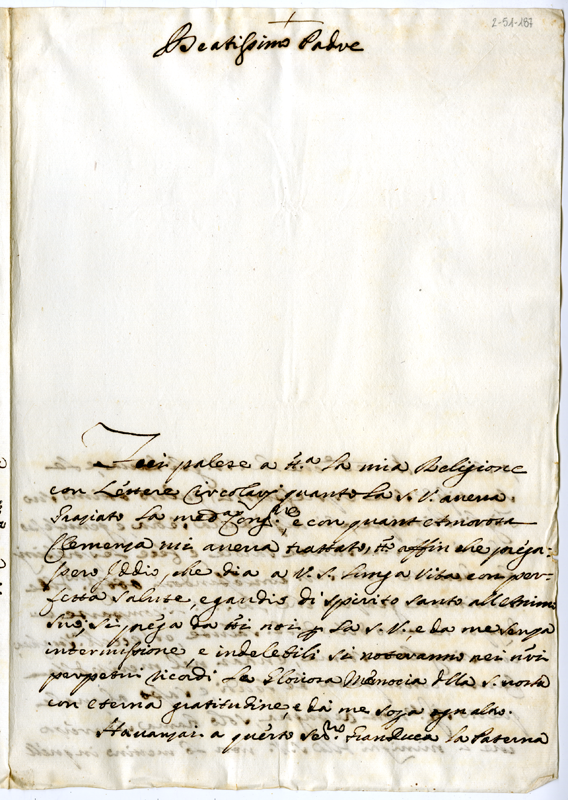 2-51-187
Beatissimo Padre
Feci palese a tt.a la mia Religione
con Lettere Circolari quanto la S. V. aveva
la med.a e con quant Amorosa
Clemenza mi aveva trattato, affin che prega-
Iddio, che dia a V. S. lunga Vita con per-
fetta salute, e gaudio di spirito santo all Anima
Sua, si prega da noi la S. V. e da me senza
intermissione e indelebili si noteranno nei nri
perpetui ricordi le Gloriosa Memoria della S. vostra
con eterna gratitudine, e da me sop.a ogn altro.
a questo Ser.mo Granduca la Paterna